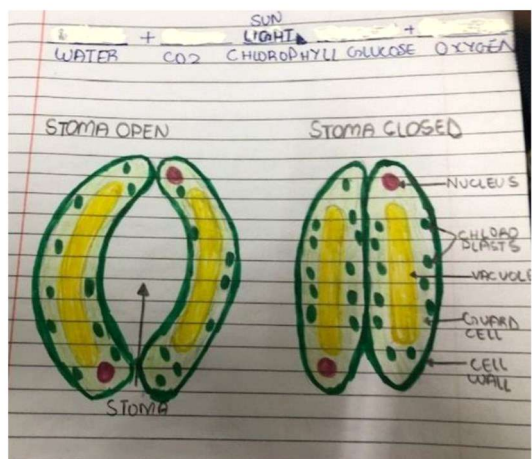 SUN
+ LIGHT +
WATER CO2 CHLOROPHYLL GLUCOSE OXYGEN
STOMA OPEN STOMA CLOSED
NUCLEUS
CHLORO
PLASTS
VACUOLE
GUARD
CELL
CELL
WALL
STOMA